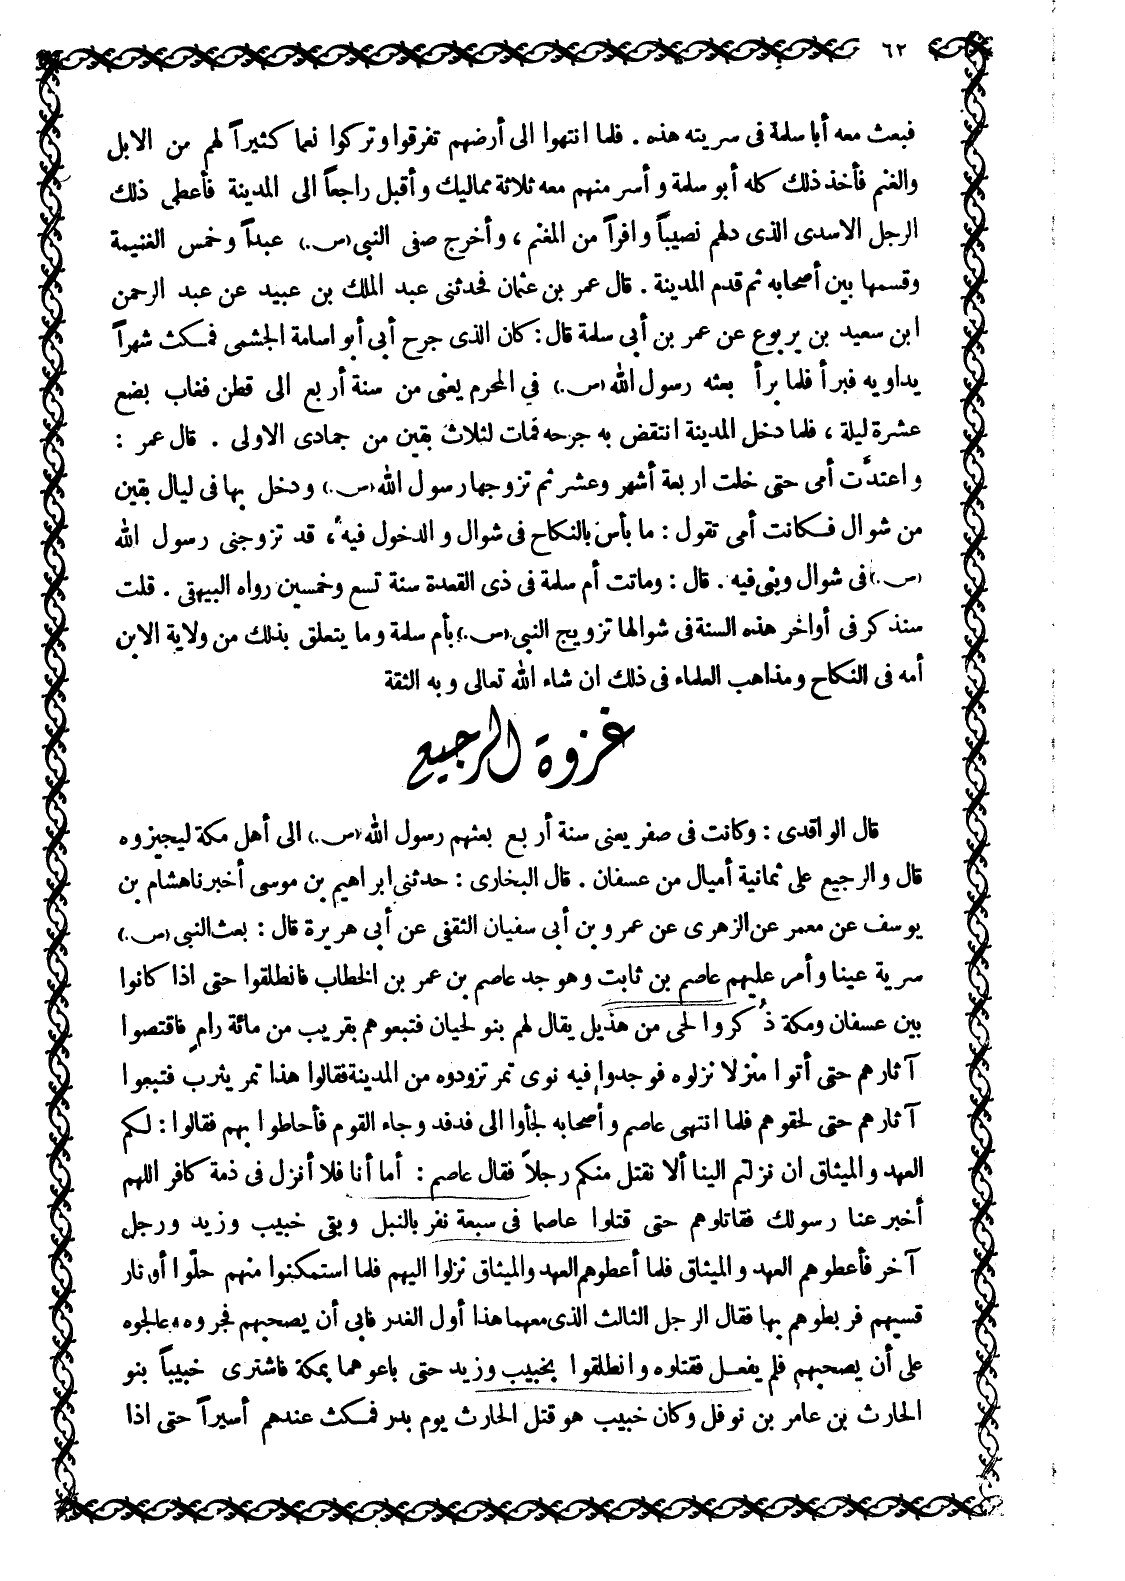 ٦٢
فبعث معه أبا سلمة فى سريته هذه . فلما انتهوا الى أرضهم تفرقوا وتركوا نعما كثيراً لهم من الابل
والغنم فأخذ ذلك كله أبو سلمة وأسر منهم معه ثلاثة مماليك وأقبل راجعاً الى المدينة فأعطى ذلك
الرجل الاسدى الذى دلهم نصيباً وافراً من المغنم ، وأخرج صفى النبى (ص.) عبداً وخمس الغنيمة
وقسمها بين أصحابه ثم قدم المدينة . قال عمر بن عثمان فحدثنى عبد الملك بن عبيد عن عبد الرحمن
ابن سعيد بن يربوع عن عمر بن أبى سلمة قال : كان الذى جرح أبى أبو اسامة الجشمى فمكث شهراً
يداويه فبرأ فلما برأ بعثه رسول الله (ص.) في المحرم يعنى من سنة أربع الى قطن فغاب بضع
عشرة ليلة ، فلما دخل المدينة انتقض به جرحه فمات لثلاث بقين من جمادى الاولى . قال عمر :
واعتدَّت أمى حتى خلت اربعة أشهر وعشر ثم تزوجها رسول الله (ص.) ودخل بها فى ليال بقين
من شوال فكانت أمى تقول : ما بأس بالنكاح فى شوال والدخول فيه ، قد تزوجنى رسول الله
(ص.) فى شوال وبنى فيه . قال : وماتت أم سلمة فى ذى القعدة سنة تسع وخمسين رواه البيهقى . قلت
سنذكر فى أواخر هذه السنة فى شوالها تزويج النبى (ص.) بأم سلمة وما يتعلق بذلك من ولاية الابن
أمه فى النكاح ومذاهب العلماء فى ذلك ان شاء الله تعالى وبه الثقة
غزوة الرجيع
قال الواقدى : وكانت فى صفر يعنى سنة أربع بعثهم رسول الله (ص.) الى أهل مكة ليجيزوه
قال والرجيع على ثمانية أميال من عسفان . قال البخارى : حدثنى ابراهيم بن موسى أخبرنا هشام بن
يوسف عن معمر عن الزهرى عن عمرو بن أبى سفيان الثقفى عن أبى هريرة قال : بعث النبى (ص.)
سرية عينا وأمر عليهم عاصم بن ثابت وهو جد عاصم بن عمر بن الخطاب فانطلقوا حتى اذا كانوا
بين عسفان ومكة ذُكروا لحى من هذيل يقال لهم بنو لحيان فتبعوهم بقريب من مائة رامٍ فاقتصوا
آثارهم حتى أتوا منزلا نزلوه فوجدوا فيه نوى تمر تزودوه من المدينة فقالوا هذا تمر يثرب فتبعوا
آثارهم حتى لحقوهم فلما انتهى عاصم وأصحابه لجأوا الى فدفد وجاء القوم فأحاطوا بهم فقالوا : لكم
العهد والميثاق ان نزلتم الينا ألا نقتل منكم رجلاً فقال عاصم : أما أنا فلا أنزل فى ذمة كافر اللهم
أخبر عنا رسولك فقاتلوهم حتى قتلوا عاصما فى سبعة نفر بالنبل وبقى خبيب وزيد ورجل
آخر فأعطوهم العهد والميثاق فلما أعطوهم العهد والميثاق نزلوا اليهم فلما استمكنوا منهم حلّوا أوتار
قسيهم فربطوهم بها فقال الرجل الثالث الذى معهما هذا أول الغدر فابى أن يصحبهم فجروه وعالجوه
على أن يصحبهم فلم يفعل فقتلوه وانطلقوا بخبيب وزيد حتى باعوهما بمكة فاشترى خبيباً بنو
الحارث بن عامر بن نوفل وكان خبيب هو قتل الحارث يوم بدر فمكث عندهم أسيراً حتى اذا